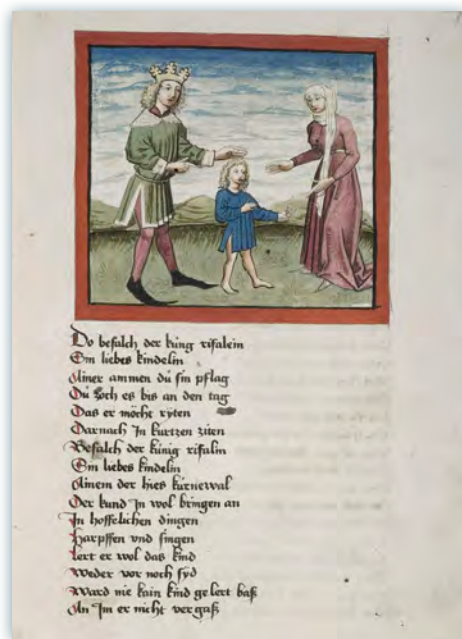 Do befalch der küng rifalein
Sin liebes kindelin
Ainer ammen dü sin pflag
Dü zoch es bis an den tag
Das er möcht ryten
Darnach In kurtzen ziten
Befalch der künig rifalin
Sin liebes kindelin
Ainem der hies kürnewal
Der kund In wol bringen an
In hoffelichen dingen
Harpffen vnd singen
Lert er wol das kind
Weder vor noch syd
Ward nie kain kind gelert baß
An Im er nicht vergaß